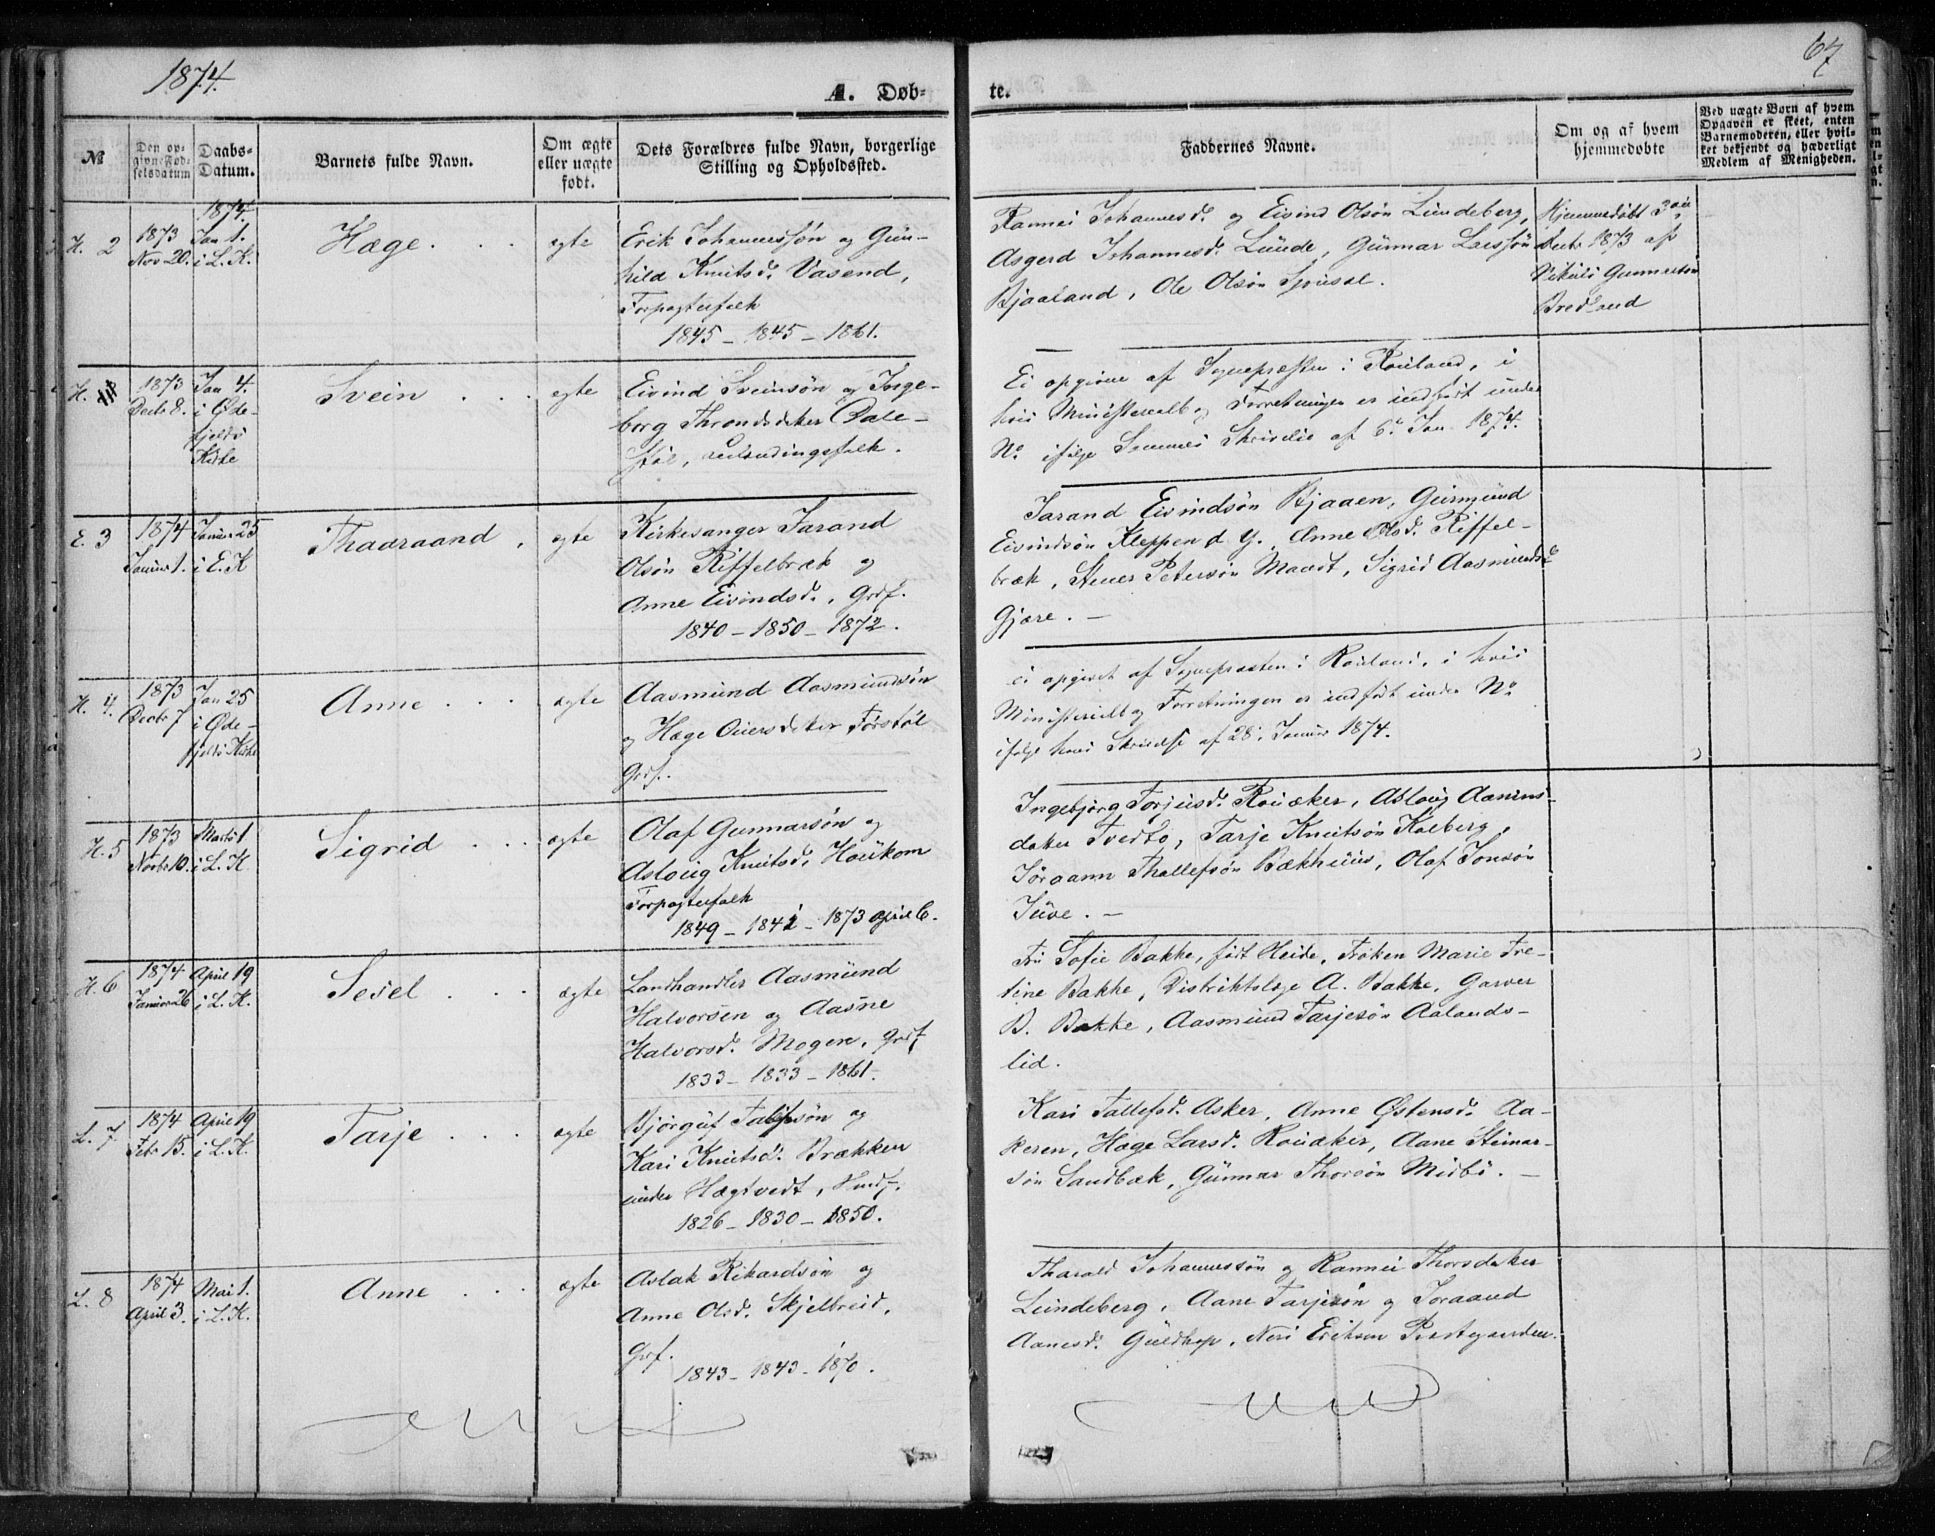 1874.
A. Døb-
te.
67
№
Den op-
givne Fød-
selsdatum
Daabs-
Datum.
Barnets fulde Navn.
Om ægte
eller uægte
født.
Dets Forældres fulde Navn, borgerlige
Stilling og Opholdssted.
Faddernes Navne.
Om og af hvem
hjemmedøbte
Ved uægte Børn af hvem
Opgaven er skeet, enten
Barnemoderen, eller hvil-
ket bekjendt og hæderligt
Medlem af Menigheden.
H. 2
1873
Nov 20.
1874.
Jan 1.
i L. K.
Hæge
ægte
Erik Johannessøn og Gun-
hild Knutsd. Vasend,
Forpagterfolk
1845 - 1845 - 1861.
Rannei Johannesd. og Eivind Olsøn Lundeberg,
Asgerd Johannesd. Lunde, Gunnar Larssøn
Bjaaland, Ole Olsøn
Hjemmedøbt 3die
Decbr 1873 af
Gunnarson
Bredland
H.
1873
Decbr 8.
Jan 4.
i Øde-
fjelds
Kirke
Svein
ægte
Eivind Sveinsøn og Inge-
borg Throndsdatter Dale-
støl,
Ei opgivne af Sognepræsten i Rauland, i
hvis Ministerialbog Forretningen er indført under
No. ifølge Sammes Skrivelse af 6te Jan. 1874.
E. 3
1874
Januar 1.
Januar 25
i E. K
Thaaraand
ægte
Kirkesanger Tarand
Olsøn Riffelbræk og
Anne Eivindsd., Grdf.
1840 - 1850 - 1872.
Tarand Eivindsøn Bjaaen, Geirmund
Eivindsøn Kleppen d. y. Anne Olsd. Riffel-
bræk, Stener Petersøn Mandt, Sigrid Aasmundsd.
Gjære. -
H. 4.
1873
Decbr 7
Jan 25
i Øde-
fjelds Kirke
Anne
ægte
Aasmund Aasmundsøn
og Hæge datter Førstøl
Grdf.
ei opgivet af Sognepræsten i Rauland, i hvis
Ministerialbog Forretningen er indført under No
ifølge hans Skrivelse af 28. Januar 1874.
H. 5
1873
Novbr 10.
Marts 1
i L. K
Sigrid
ægte
Olaf Gunnarsøn og
Aslaug Knutsd. Haukom
Forpagterfolk
1849 - 1842 - 1873 april 6.
Ingebjørg Torjusd. Rauaker, Aslaug Aanuns-
datter Tvedto, Tarje Knutsøn Kolberg,
Jøraann Thallefsøn Bækhuus, Olaf Jonsøn
Juve. -
H. 6
1874
Januar 26
April 19
i L. K.
Sesel
ægte
Landhandler Aasmund
Halvorsen og Aasne
Halvorsd. Mogen, Grdf
1833 - 1833 - 1861.
Fru Sofie Bakke, født Heide, Frøken Marie Fre-
tine Bakke, Distriktslæge A. Bakke, Garver
B. Bakke, Aasmund Tarjesøn Aalands-
lid.
L. 7
1874
Febr 15.
April 19
i L. K.
Tarje
ægte
Bjørguf og
Kari Knutsd. Brækken
under Hægtvedt, Husf.
1826 - 1830 - 1850.
Kari Tallefsd. Asker, Anne Østensd. Aa-
keren, Hæge Larsd. Rauaker, Aane Steinar-
søn Sandbæk, Gunnar Thorsøn Midbø. -
L. 8
1874
April 3.
Mai 1.
i L. K.
Anne
ægte
Aslak Rikardsøn og
Anne Olsd. Skjelbreid,
Grf.
1843 - 1843 - 1870.
Tharald Johannessøn og Rannei Thorsdatter
Lundeberg, Aane Tarjesøn og Joraand
Aanesd. Guldhop, Neri Eriksen Præstegaarden.